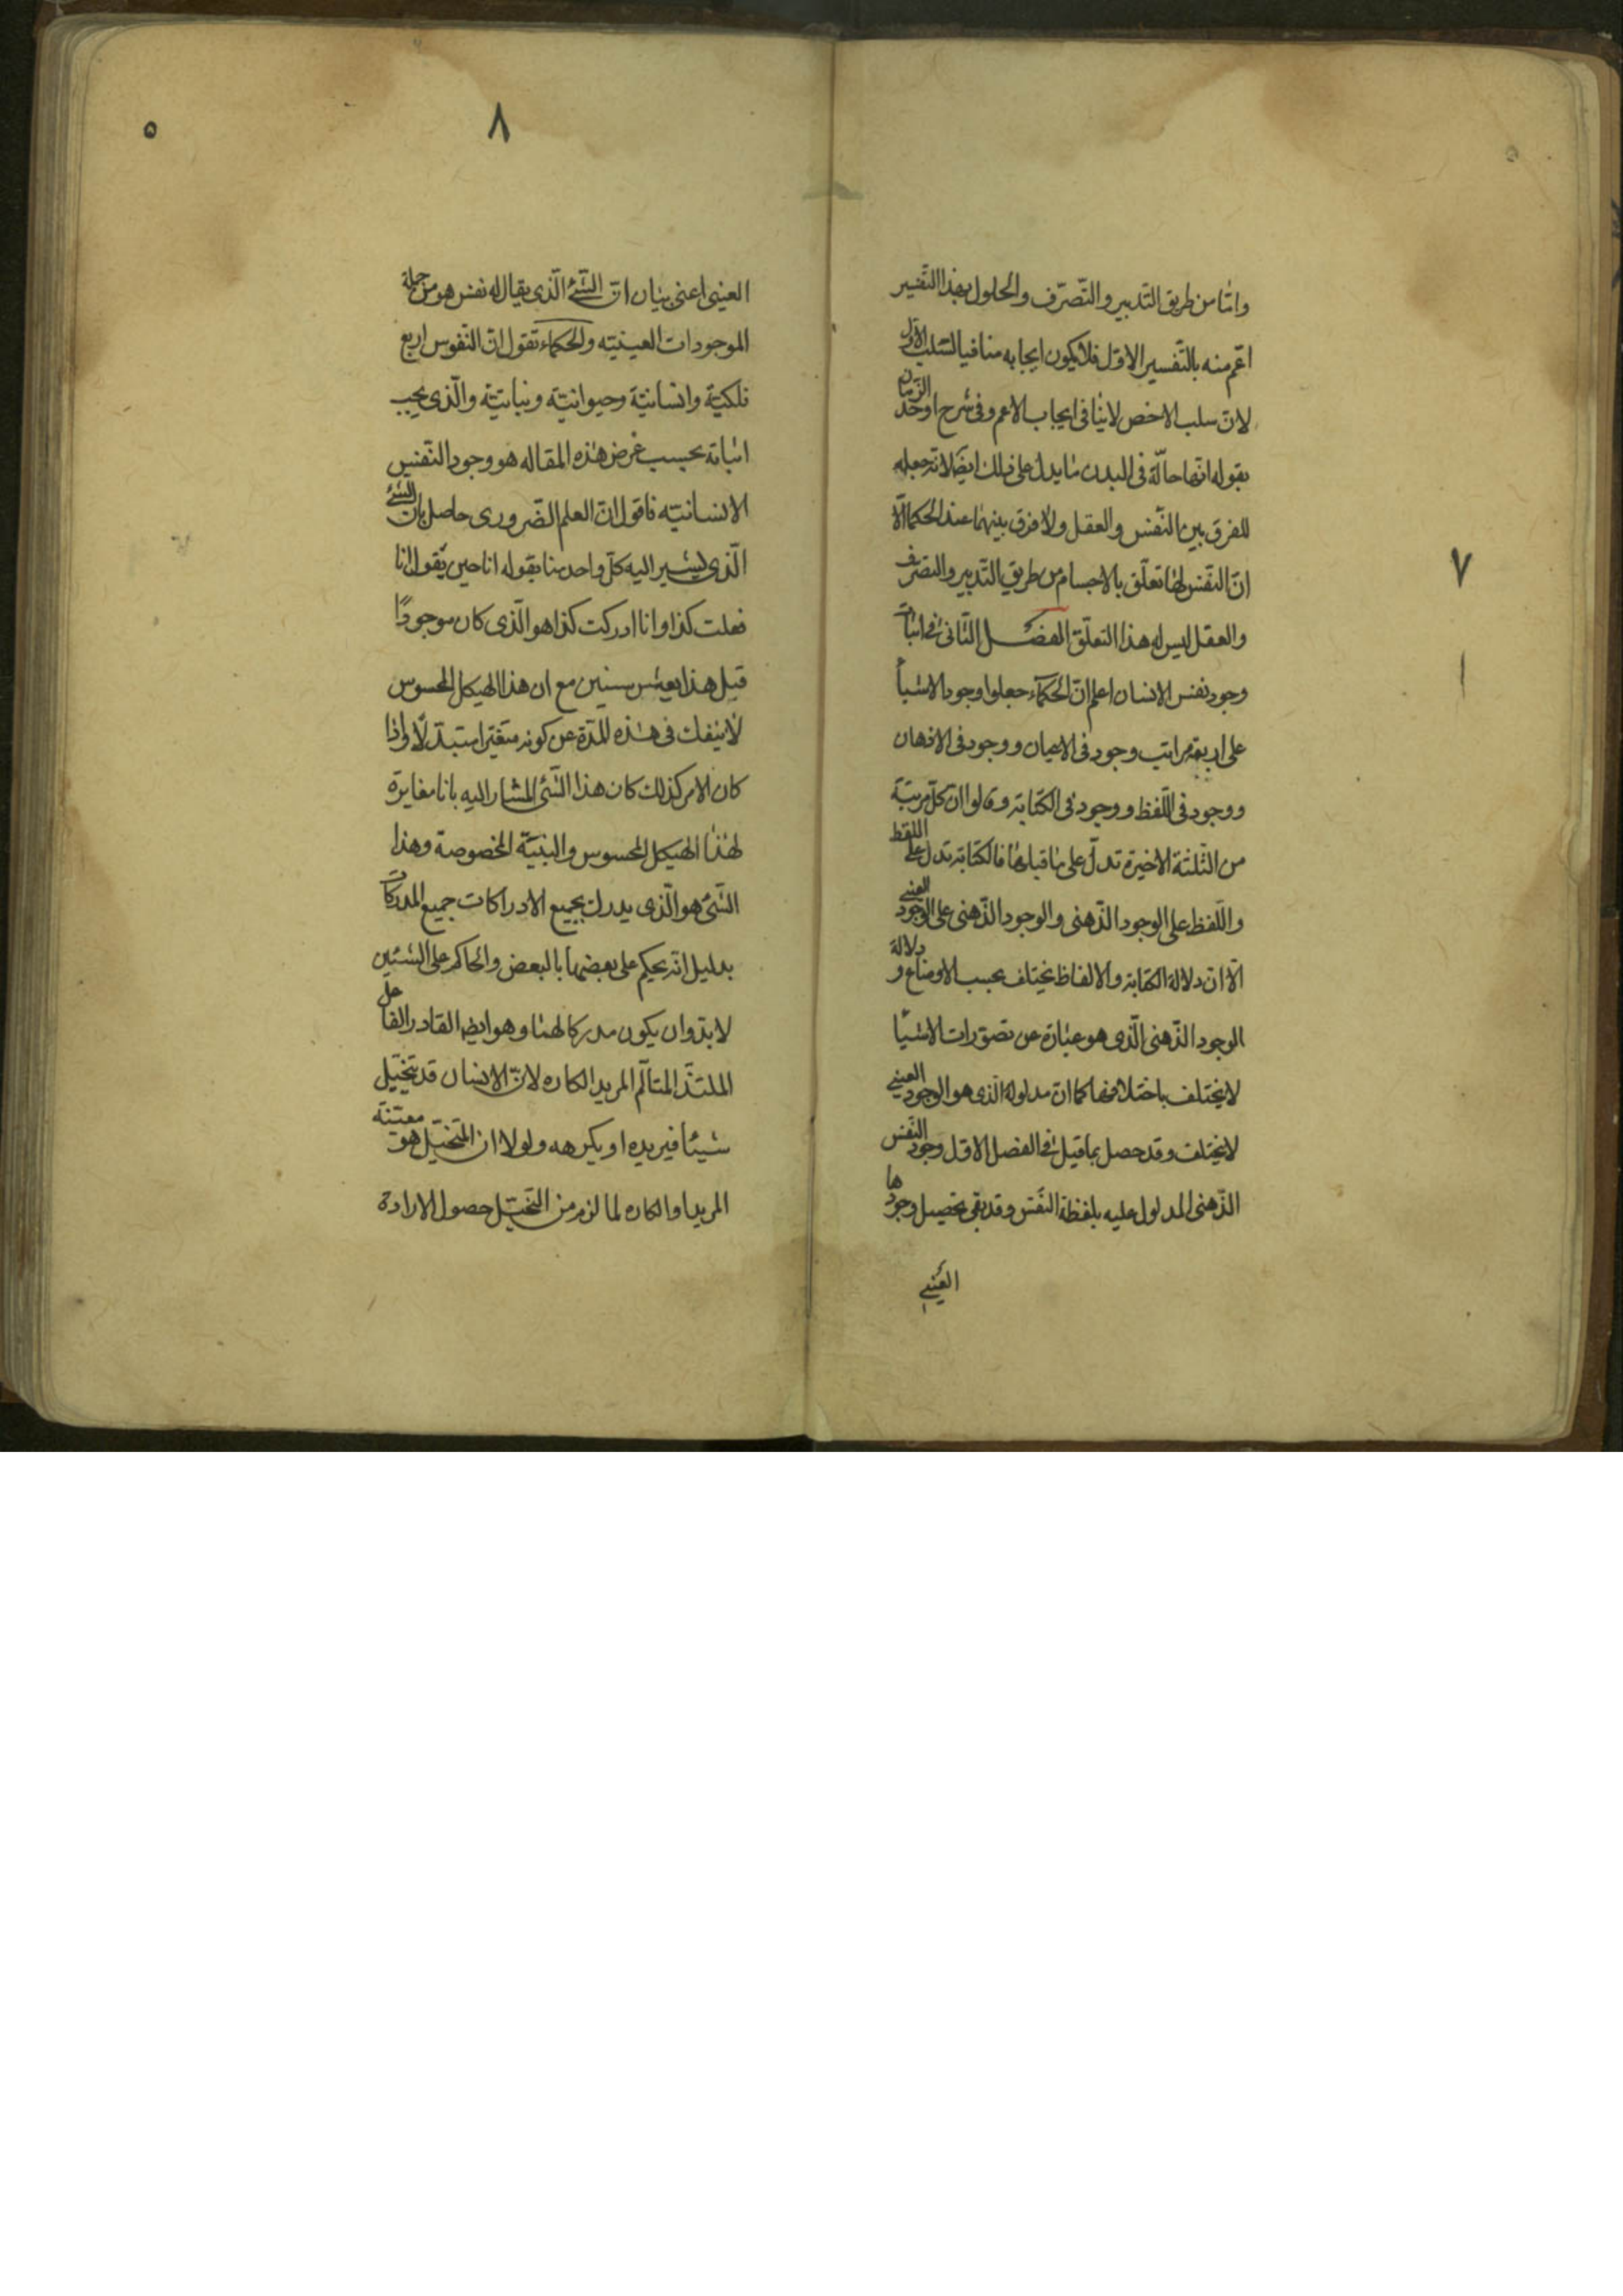 ٧
وامّا من طريق التّدبير والتّصرّف والحلول بهذا التّفسير
اعّم منه بالتّفسير الاوّل فلا يكون ايجابه منافيا لسلب الاوّل
لانّ سلب الاخص لا ينافى ايجاب الاعم وفى شرح اوحد الزمان
بقوله انّها حالّة فى البدن ما يدل على ذلك ايضًا لانّه جعله
للفرق بين النّفس والعقل ولا فرق بينهما عند الحكما الّا
انّ النّفس لها تعلّق بالاجسام من طريق التّدبير والتصرّف
والعقل ليس له هذا التعلّق الفصل الثّانى فى اثبات
وجود نفس الانسان اعلم انّ الحكماء جعلوا وجود الاشياء
على اربعة مراتب وجود فى الاعيان ووجود فى الاذهان
ووجود فى اللّفظ ووجود فى الكتابة وقالوا ان كلّ مرتبة
من الثّلثة الاخيرة تدلّ على ما قبلها فالكتابة تدل على اللفظ
واللّفظ على الوجود الذّهنى والوجود الذّهنى على الوجود العينى
الّا ان دلالة الكتابة والالفاظ يختلف بحسب الاوضاع و دلالة
الوجود الذّهنى الّذى هو عبارة عن تصوّرات الاشياء
لا يختلف باختلافها كما انّ مدلوله الّذى هو الوجود العينى
لا يختلف وقد حصل بما قيل فى الفصل الاوّل وجود النّفس
الذّهنى المدلول عليه بلفظة النّفس وقد بقى تحصيل وجودها
العينى
٨
٥
العينى اعنى بيان انّ الشّئ الّذى يقال له نفس هو من جملة
الموجودات العينيّه والحكماء تقول انّ النّفوس اربع
فلكيّة وانسانيّة وحيوانيّة ونباتيّة والّذى يجب
اثباته بحسب غرض هذه المقاله هو وجود النّفس
الانسانيّه فاقول انّ العلم الضّرورى حاصل بان الشّئ
الّذى يشير اليه كلّ واحد منا بقوله انا حين يقول انا
فعلت كذا وانا ادركت كذا هو الّذى كان موجودًا
قبل هذا بعشر سنين مع ان هذا الهيكل المحسوس
لا ينفك فى هذه المدّة عن كونه متغيّرا متبدّلا واذا
كان الامر كذلك كان هذا الشّئ المشار اليه بانا مغايرة
لهذا الهيكل المحسوس والبنيّة المخصوصة وهذا
الشّئ هو الّذى يدرك بجميع الادراكات جميع المدركات
بدليل انّه يحكم على بعضها بالبعض والحاكم على الشّيئين
لا بدّ وان يكون مدركا لهما وهو ايضا القادر الفاعل
الملتذّ المتألّم المريد الكاره لانّ الانسان قد يتخيّل
شيئا فيريده او يكرهه ولولا ان المتخيّل هو بعينه
المريد او الكاره لما لزم من التّخيّل حصول الارادة